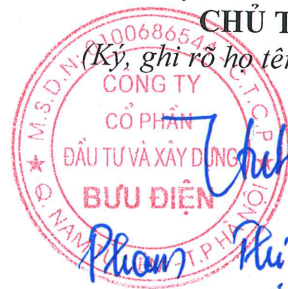 CHỦ T
(Ký, ghi rõ họ tên
M.S.D.N: 0100686544 C.T.C.P
CÔNG TY
CỔ PHẦN
ĐẦU TƯ VÀ XÂY DỰNG
BƯU ĐIỆN
T.P HÀ NỘI
Phạm